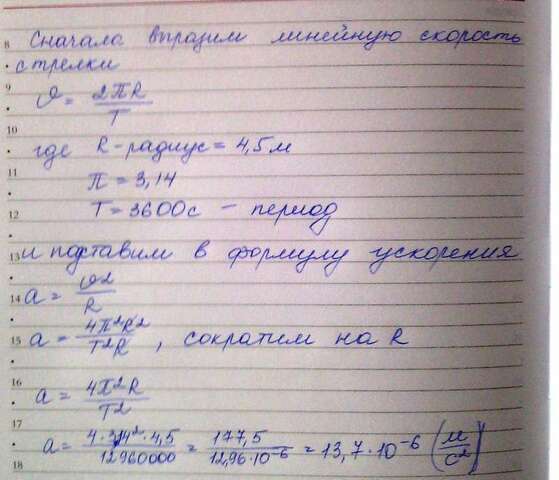 8 Сначала выразим линейную скорость
стрелки
9
υ = 2πR / T
10
где R - радиус = 4,5 м
11
π = 3,14
12 T = 3600 с – период
13 и подставим в формулу ускорения
14 a = υ² / R
15 a = 4π²R² / T²R , сократим на R
16
a = 4π²R / T²
17
a = 4·3,14²·4,5 / 12960000 = 177,5 / 12,96·10⁻⁶ = 13,7·10⁻⁶ (м/с²)
18